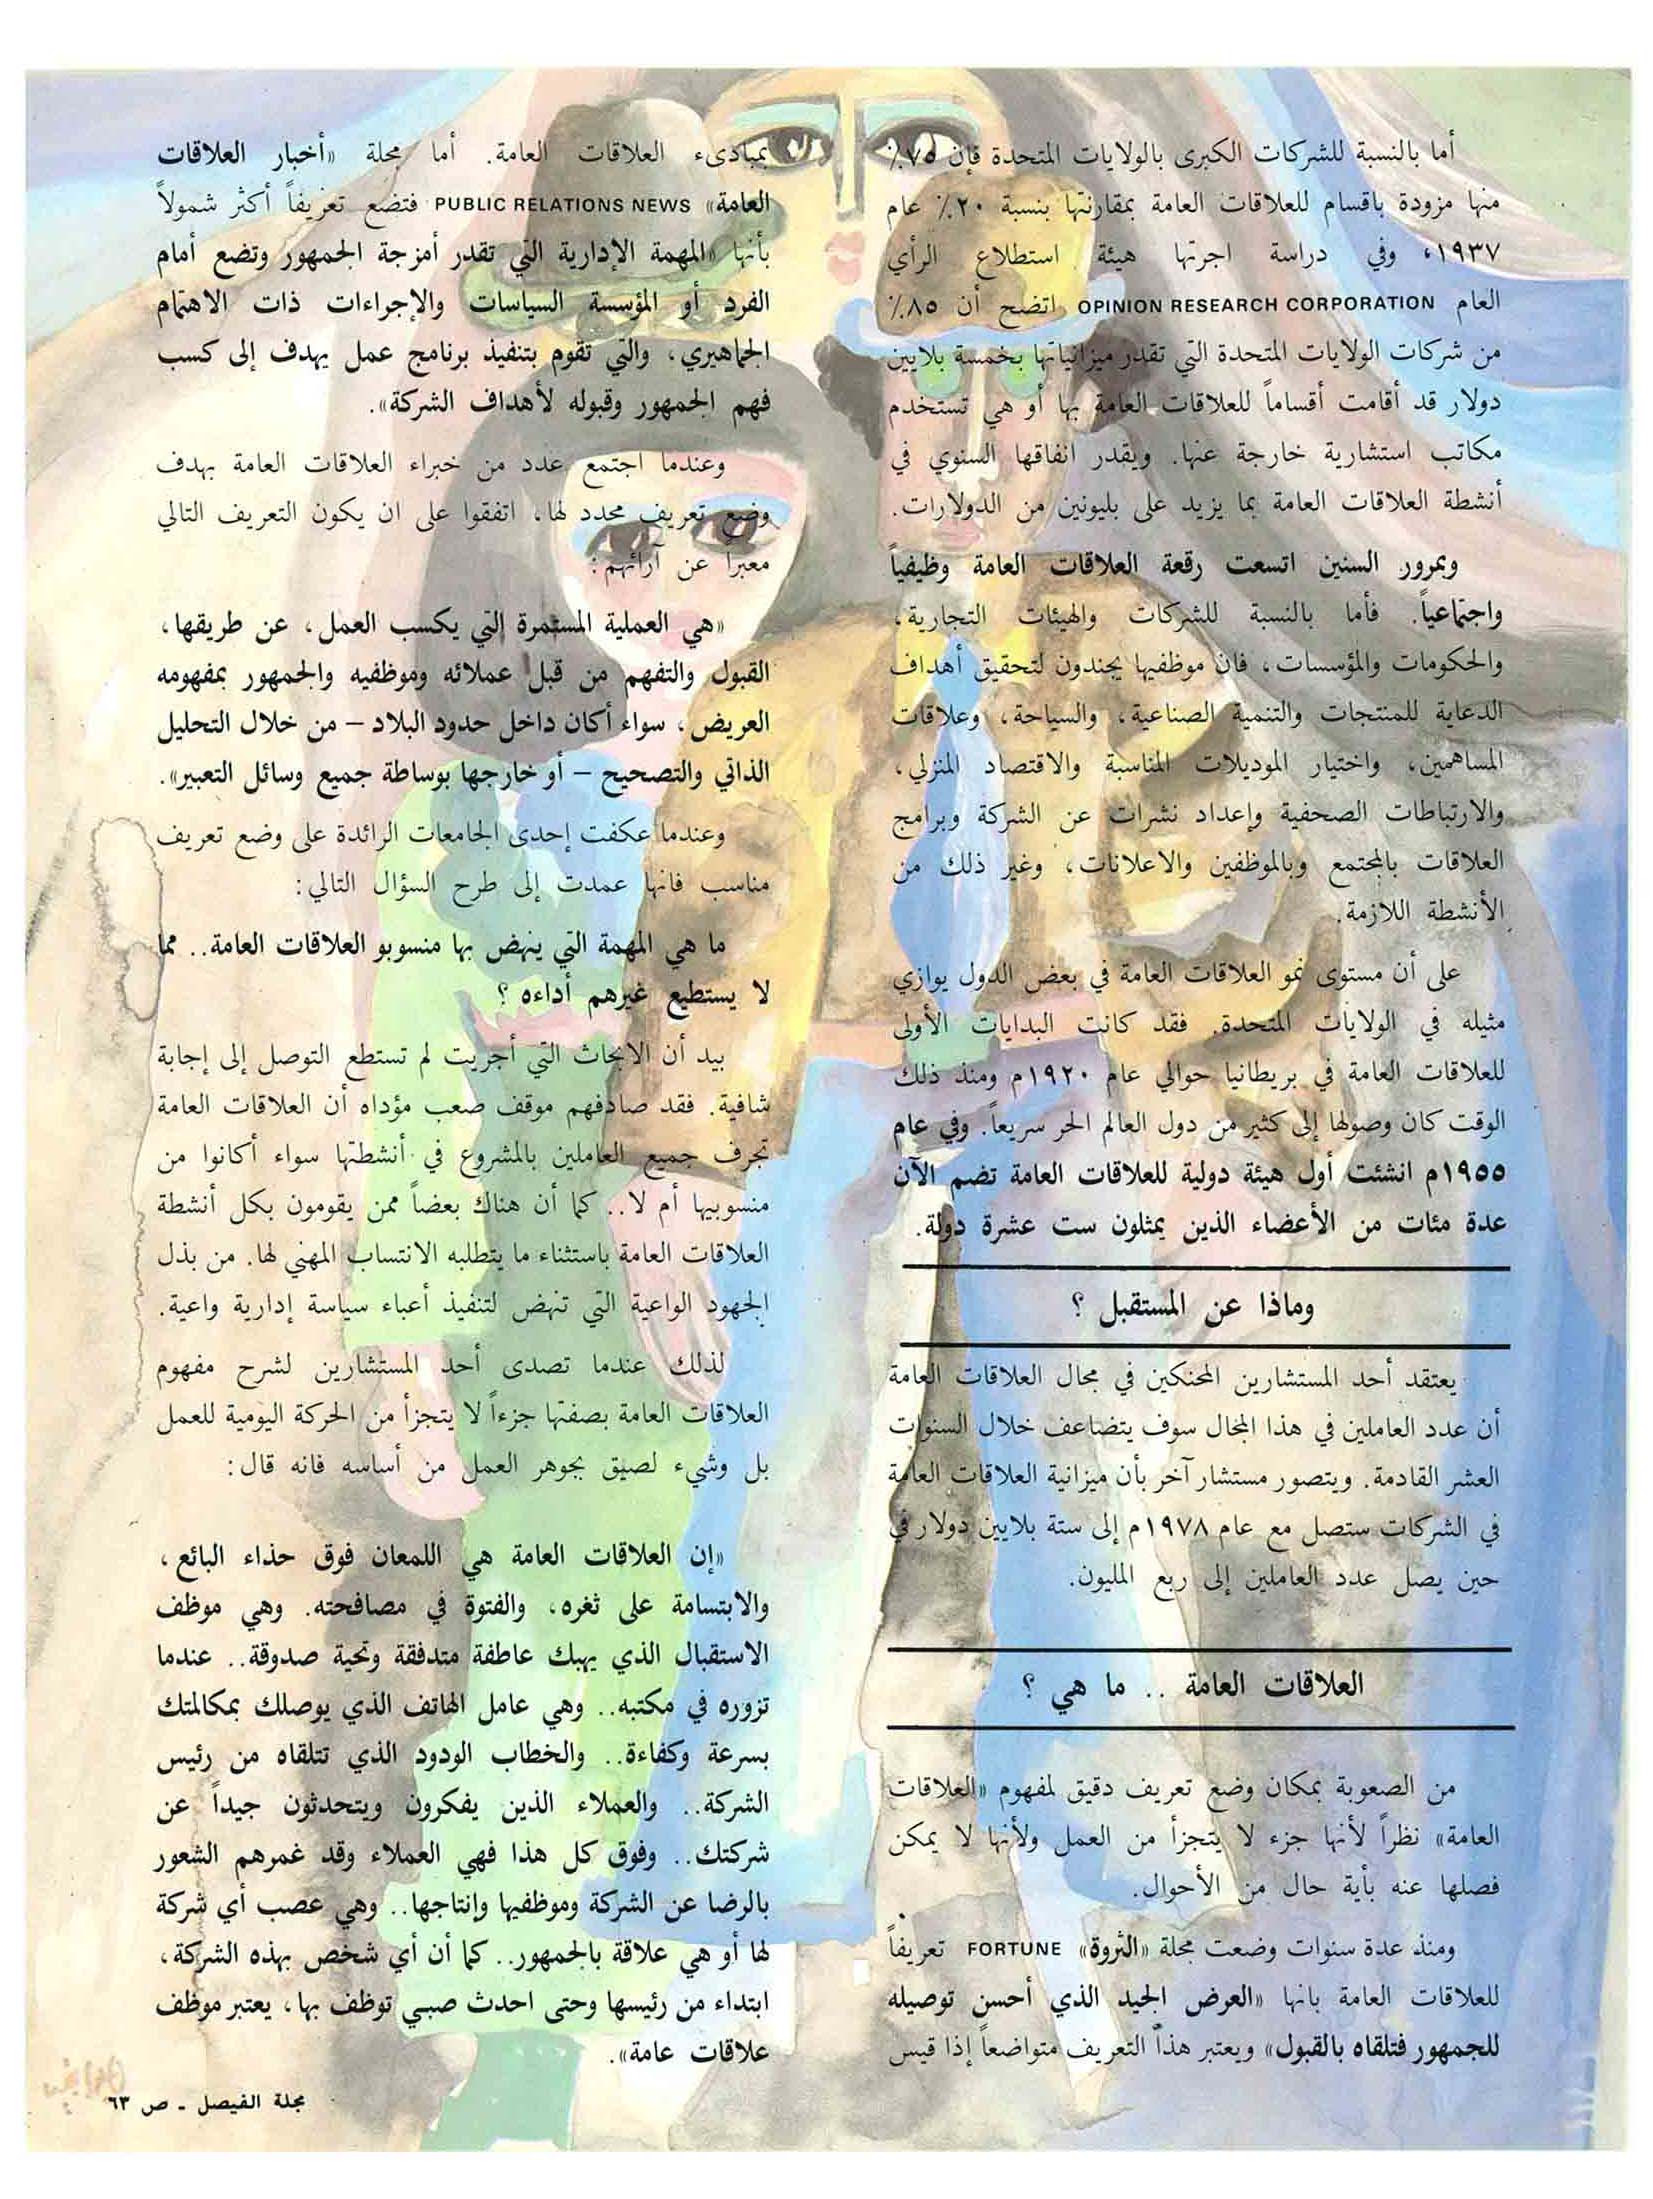 أما بالنسبة للشركات الكبرى بالولايات المتحدة فإن ٧٥٪
منها مزودة باقسام للعلاقات العامة بمقارنتها بنسبة ٢٠٪ عام
١٩٣٧، وفي دراسة اجرتها هيئة استطلاع الرأي
العام OPINION RESEARCH CORPORATION اتضح أن ٨٥٪
من شركات الولايات المتحدة التي تقدر ميزانياتها بخمسة بلايين
دولار قد أقامت أقساماً للعلاقات العامة بها أو هي تستخدم
مكاتب استشارية خارجة عنها. ويقدر انفاقها السنوي في
أنشطة العلاقات العامة بما يزيد على بليونين من الدولارات.
وبمرور السنين اتسعت رقعة العلاقات العامة وظيفياً
واجتماعياً. فأما بالنسبة للشركات والهيئات التجارية،
والحكومات والمؤسسات، فان موظفيها يجندون لتحقيق أهداف
الدعاية للمنتجات والتنمية الصناعية، والسياحة، وعلاقات
المساهمين، واختيار الموديلات المناسبة والاقتصاد المنزلي،
والارتباطات الصحفية وإعداد نشرات عن الشركة وبرامج
العلاقات بالمجتمع وبالموظفين والاعلانات، وغير ذلك من
الأنشطة اللازمة.
على أن مستوى نمو العلاقات العامة في بعض الدول يوازي
مثيله في الولايات المتحدة. فقد كانت البدايات الأولى
للعلاقات العامة في بريطانيا حوالي عام ١٩٢٠م ومنذ ذلك
الوقت كان وصولها إلى كثير من دول العالم الحر سريعاً. وفي عام
١٩٥٥م انشئت أول هيئة دولية للعلاقات العامة تضم الآن
عدة مئات من الأعضاء الذين يمثلون ست عشرة دولة.
وماذا عن المستقبل ؟
يعتقد أحد المستشارين المحنكين في مجال العلاقات العامة
أن عدد العاملين في هذا المجال سوف يتضاعف خلال السنوات
العشر القادمة. ويتصور مستشار آخر بأن ميزانية العلاقات العامة
في الشركات ستصل مع عام ١٩٧٨م إلى ستة بلايين دولار في
حين يصل عدد العاملين إلى ربع المليون.
العلاقات العامة .. ما هي ؟
من الصعوبة بمكان وضع تعريف دقيق لمفهوم «العلاقات
العامة» نظراً لأنها جزء لا يتجزأ من العمل ولأنها لا يمكن
فصلها عنه بأية حال من الأحوال.
ومنذ عدة سنوات وضعت مجلة «الثروة» FORTUNE تعريفاً
للعلاقات العامة بانها «العرض الجيد الذي أحسن توصيله
للجمهور فتلقاه بالقبول» ويعتبر هذا التعريف متواضعاً إذا قيس
بمبادىء العلاقات العامة. أما مجلة «أخبار العلاقات
العامة» PUBLIC RELATIONS NEWS فتضع تعريفاً أكثر شمولاً
بأنها «المهمة الإدارية التي تقدر أمزجة الجمهور وتضع أمام
الفرد أو المؤسسة السياسات والإجراءات ذات الاهتمام
الجماهيري، والتي تقوم بتنفيذ برنامج عمل يهدف إلى كسب
فهم الجمهور وقبوله لأهداف الشركة».
وعندما اجتمع عدد من خبراء العلاقات العامة بهدف
وضع تعريف محدد لها، اتفقوا على ان يكون التعريف التالي
معبراً عن آرائهم:
«هي العملية المستمرة التي يكسب العمل، عن طريقها،
القبول والتفهم من قبل عملائه وموظفيه والجمهور بمفهومه
العريض، سواء أكان داخل حدود البلاد – من خلال التحليل
الذاتي والتصحيح – أو خارجها بوساطة جميع وسائل التعبير».
وعندما عكفت إحدى الجامعات الرائدة على وضع تعريف
مناسب فانها عمدت إلى طرح السؤال التالي:
ما هي المهمة التي ينهض بها منسوبو العلاقات العامة.. مما
لا يستطيع غيرهم أداءه ؟
بيد أن الابحاث التي أجريت لم تستطع التوصل إلى إجابة
شافية. فقد صادفهم موقف صعب مؤداه أن العلاقات العامة
تجرف جميع العاملين بالمشروع في أنشطتها سواء أكانوا من
منسوبيها أم لا.. كما أن هناك بعضاً ممن يقومون بكل أنشطة
العلاقات العامة باستثناء ما يتطلبه الانتساب المهني لها. من بذل
الجهود الواعية التي تنهض لتنفيذ أعباء سياسة إدارية واعية.
لذلك عندما تصدى أحد المستشارين لشرح مفهوم
العلاقات العامة بصفتها جزءاً لا يتجزأ من الحركة اليومية للعمل
بل وشيء لصيق بجوهر العمل من أساسه فانه قال:
«إن العلاقات العامة هي اللمعان فوق حذاء البائع،
والابتسامة على ثغره، والفتوة في مصافحته. وهي موظف
الاستقبال الذي يهبك عاطفة متدفقة وتحية صدوقة.. عندما
تزوره في مكتبه.. وهي عامل الهاتف الذي يوصلك بمكالمتك
بسرعة وكفاءة.. والخطاب الودود الذي تتلقاه من رئيس
الشركة.. والعملاء الذين يفكرون ويتحدثون جيداً عن
شركتك.. وفوق كل هذا فهي العملاء وقد غمرهم الشعور
بالرضا عن الشركة وموظفيها وإنتاجها.. وهي عصب أي شركة
لها أو هي علاقة بالجمهور.. كما أن أي شخص بهذه الشركة،
ابتداء من رئيسها وحتى احدث صبي توظف بها، يعتبر موظف
علاقات عامة».
مجلة الفيصل ـ ص ٦٣